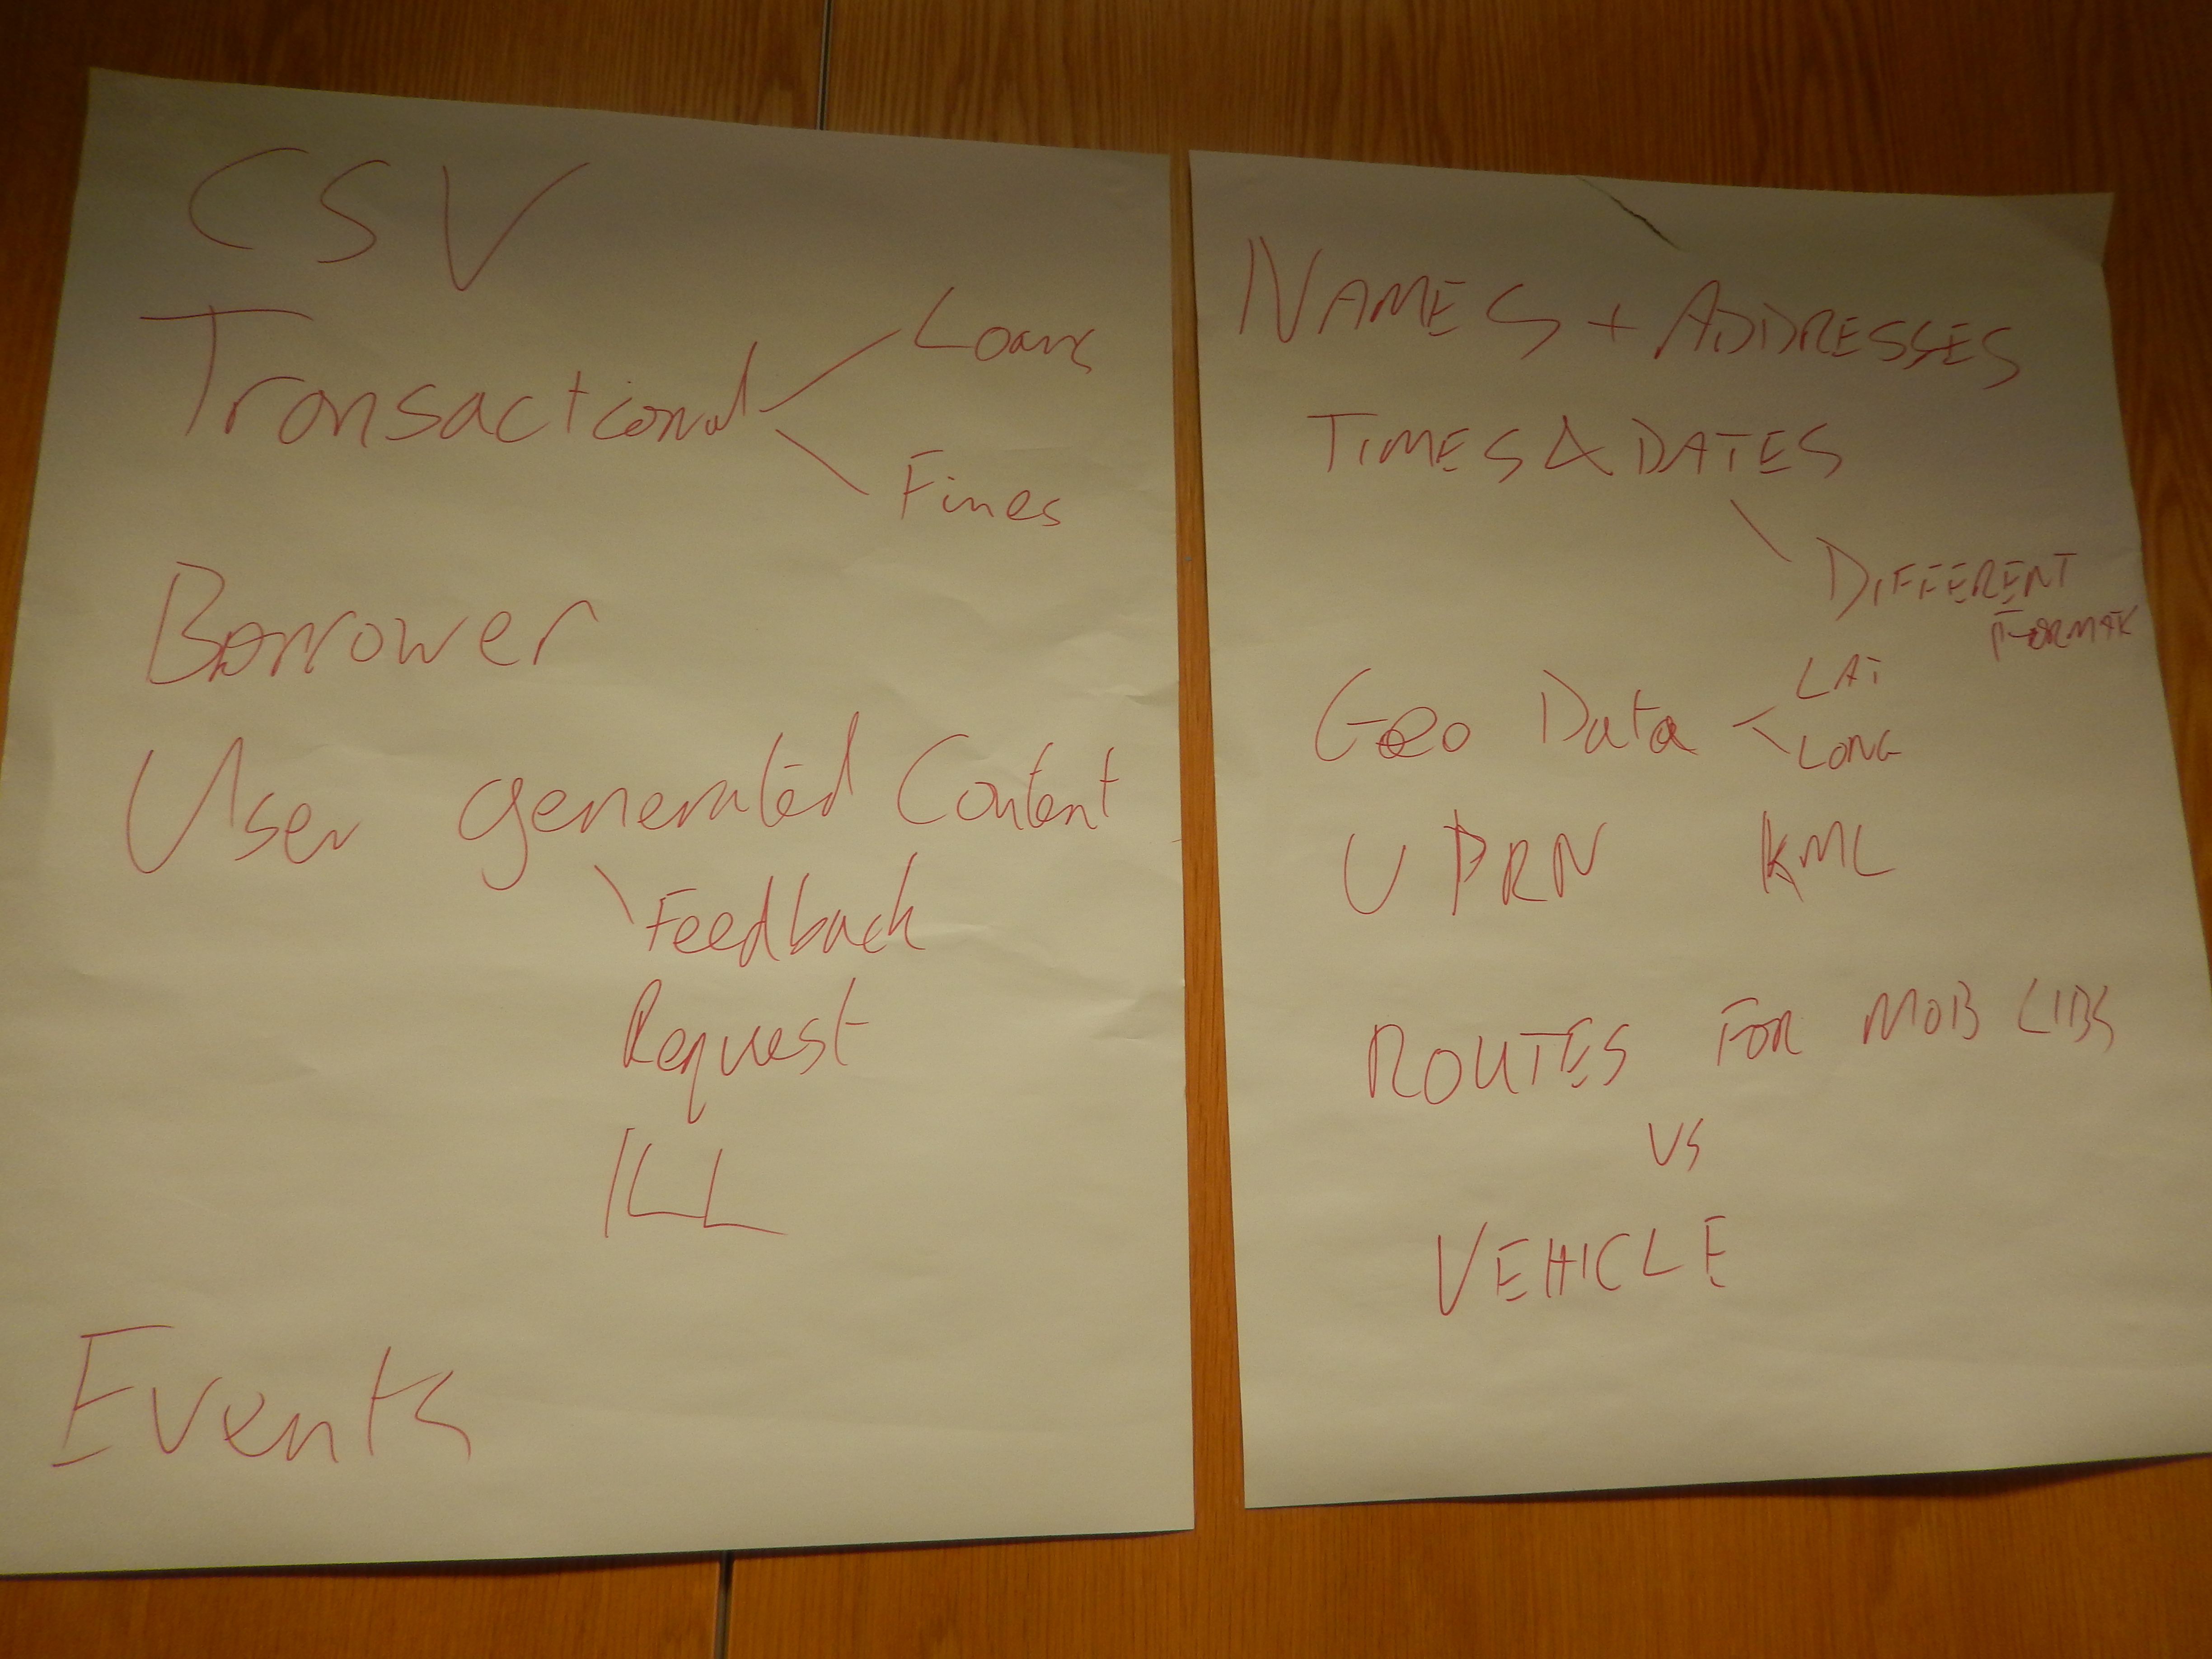 CSV
Transactional
Loans
Fines
Borrower
User generated Content
Feedback
Request
ILL
Events
NAMES + ADDRESSES
TIMES & DATES
DIFFERENT
FORMATS
Geo Data
LAT
LONG
UPRN KML
ROUTES FOR MOB LIBS
VS
VEHICLE